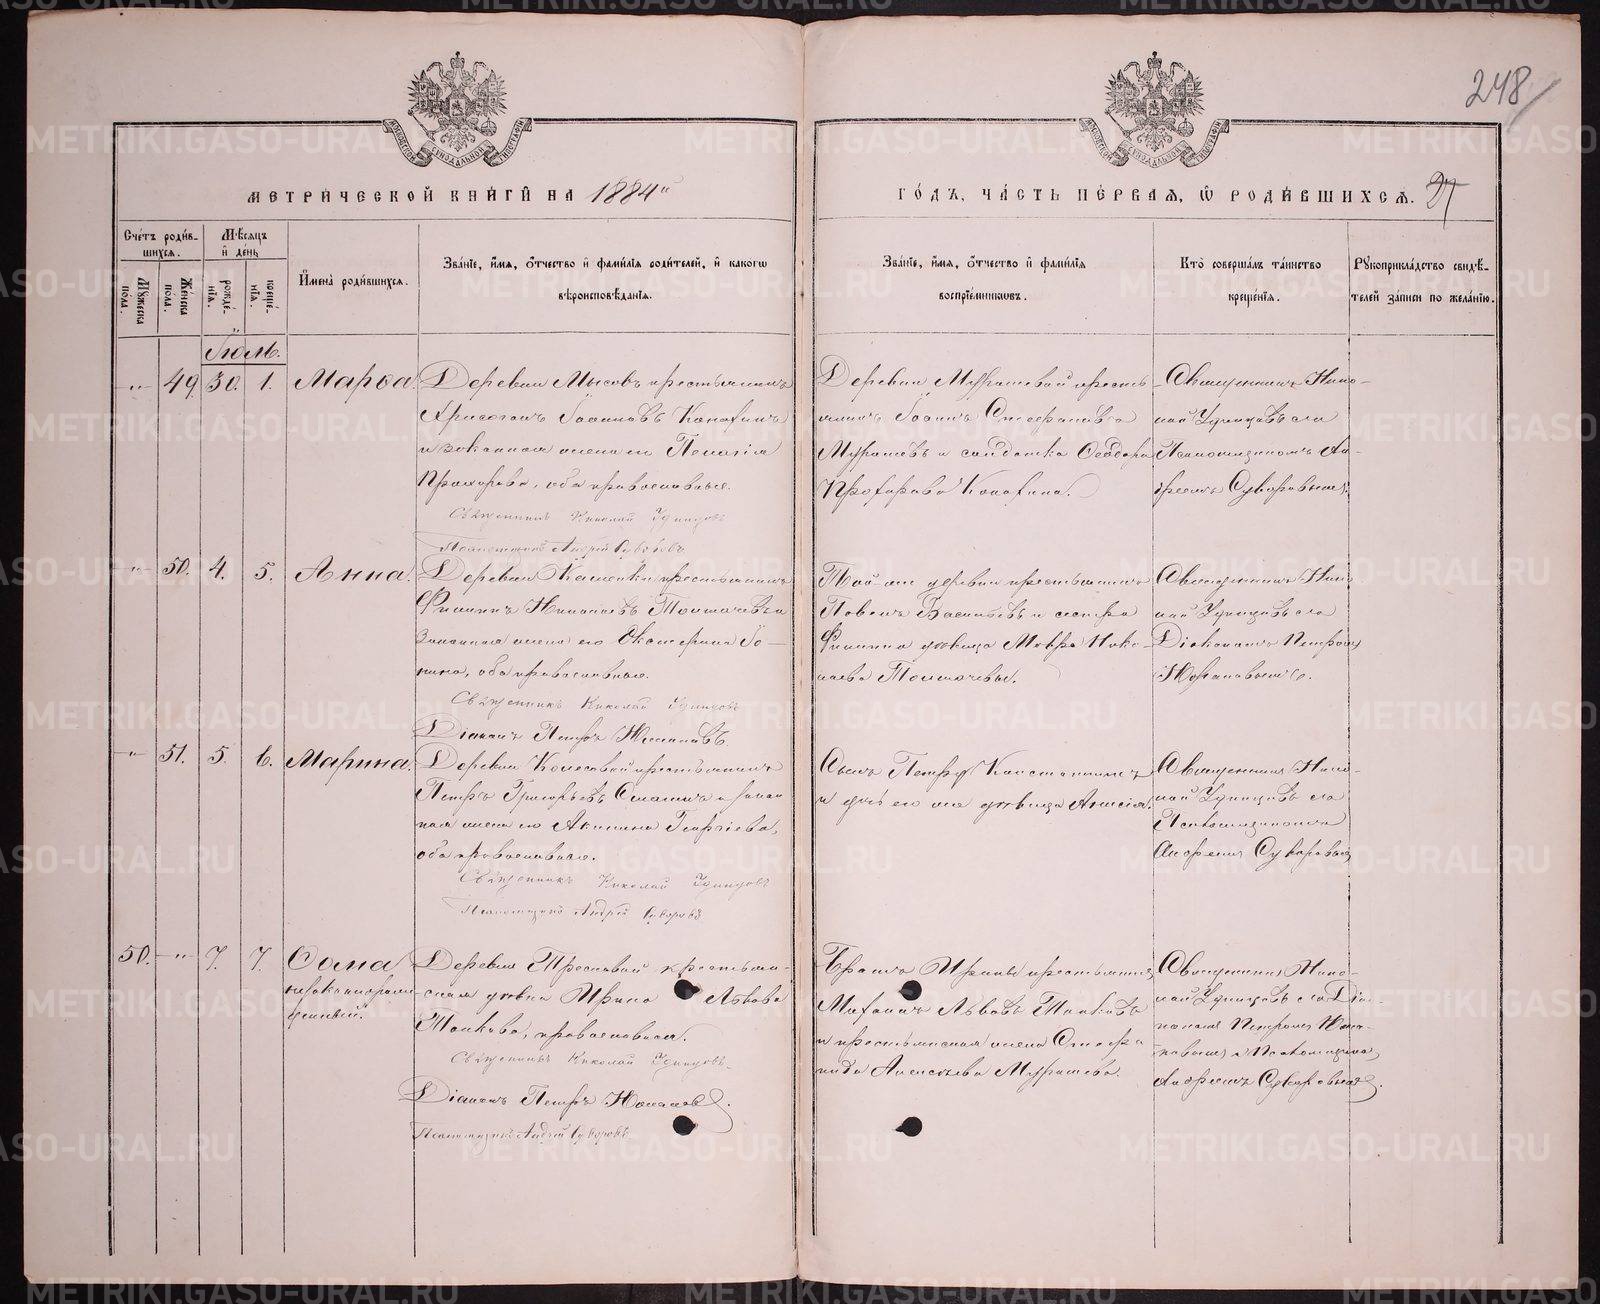 248
МЕТРИЧЕСКОЙ КНИГИ НА 1884й
ГОДЪ, ЧАСТЬ ПЕРВАЯ, Ѡ РОДИВШИХСЯ. 27
Счетъ родив-
шихся.
Мѣсяцъ
и день
Мужеска
пола.
Женска
пола.
рожде-
нїя.
креще-
нїя.
Имена родившихся.
Званїе, имя, отчество и фамилїя родителей, и какогѡ
вѣроисповѣданїя.
Званїе, имя, отчество и фамилїя
воспрїемниковъ.
Кто совершалъ таинство
крещенїя.
Рукоприкладство свидѣ-
телей записи по желанїю.
Іюль.
49. 30. 1. Марѳа
Деревни Мысовъ крестьянинъ
Хрисогонъ Іоанновъ Конахинъ
и законная жена его Пелагія
Прохорова, оба православные.
Священникъ Николай Удинцовъ
Псаломщикъ Андрей Суворовъ
Деревни Мурашевой кресть-
янинъ Іоаннъ Стефановъ
Мурашевъ и солдатка Ѳеодора
Конахина.
Священникъ Нико-
лай Удинцовъ съ
Псаломщикомъ Ан-
дреемъ Суворовымъ.
50. 4. 5. Анна.
Деревни крестьянинъ
Филиппъ Николаевъ Толмачевъ и
законная жена его Екатерина Іо-
нина, оба православные.
Священникъ Николай Удинцовъ
Діаконъ Петръ
Той же деревни крестьянинъ
Павелъ Васильевъ и сестра
Филиппа дѣвица Мавра Нико-
лаева Толмачевы.
Священникъ Нико-
лай Удинцовъ съ
Діакономъ Петромъ
51. 5. 6. Марина.
Деревни крестьянинъ
Петръ Григорьевъ и закон-
ная жена его Акилина Георгіева,
оба православные.
Священникъ Николай Удинцовъ
Псаломщикъ Андрей Суворовъ
Сынъ Петръ
и дочь его же дѣвица Анисія.
Священникъ Нико-
лай Удинцовъ съ
Псаломщикомъ
Андреемъ Суворовымъ
50. 7. 7. Ѳома
незаконорож-
денный.
Деревни крестьян-
ская дѣвка Ирина Львова
православная.
Священникъ Николай Удинцовъ.
Діаконъ Петръ
Псаломщикъ Андрей Суворовъ
Братъ Ирины крестьянинъ
Львовъ
и крестьянская жена Стефа-
нида Алексѣева Мурашева.
Священникъ Нико-
лай Удинцовъ съ Діа-
кономъ Петромъ
и Псаломщикомъ
Андреемъ Суворовымъ.
METRIKI.GASO-URAL.RU